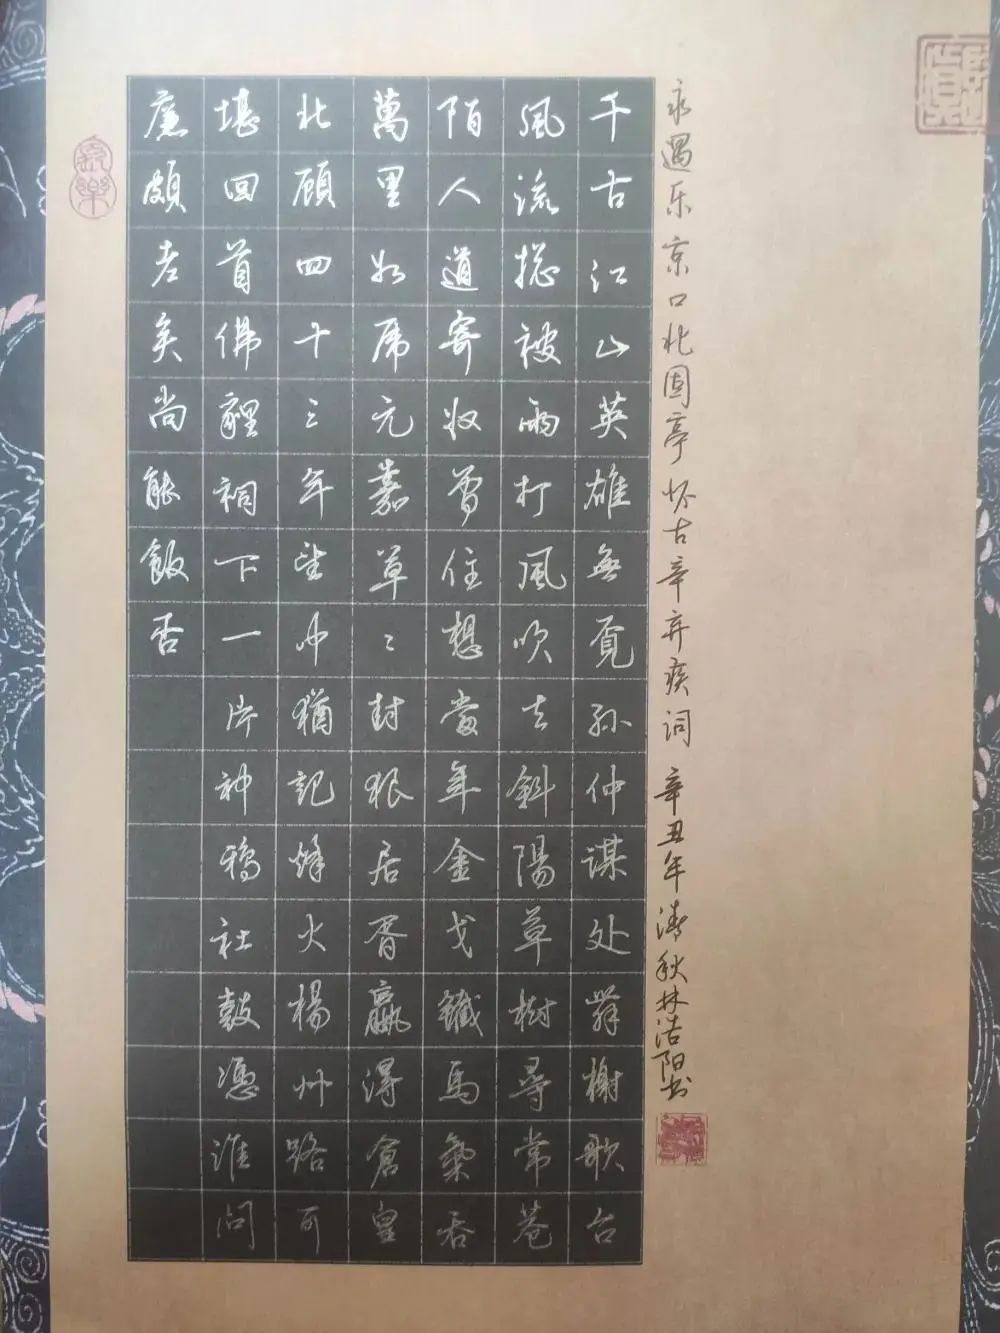 永遇乐京口北固亭怀古辛弃疾词 辛丑年清秋林浩阳书
千古江山英雄無覓孙仲謀处舞榭歌台
風流總被雨打風吹去斜陽草樹尋常巷
陌人道寄奴曾住想當年金戈鐵馬氣吞
萬里如虎元嘉草々封狼居胥贏得倉皇
北顧四十三年望中猶記烽火楊州路可
堪回首佛貍祠下一片神鴉社鼓憑誰問
廉頗老矣尚能飯否